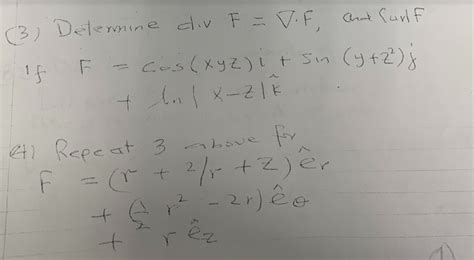 (3) Determine div F = ∇·F, and Curl F
if F = cos(xyz) i + sin (y+z²) ĵ
+ ln | x-z | k̂
(4) Repeat 3 above for
F = (r + 2/r + z) ê_r
+ (1/2 r² - 2r) ê_θ
+ r ê_z